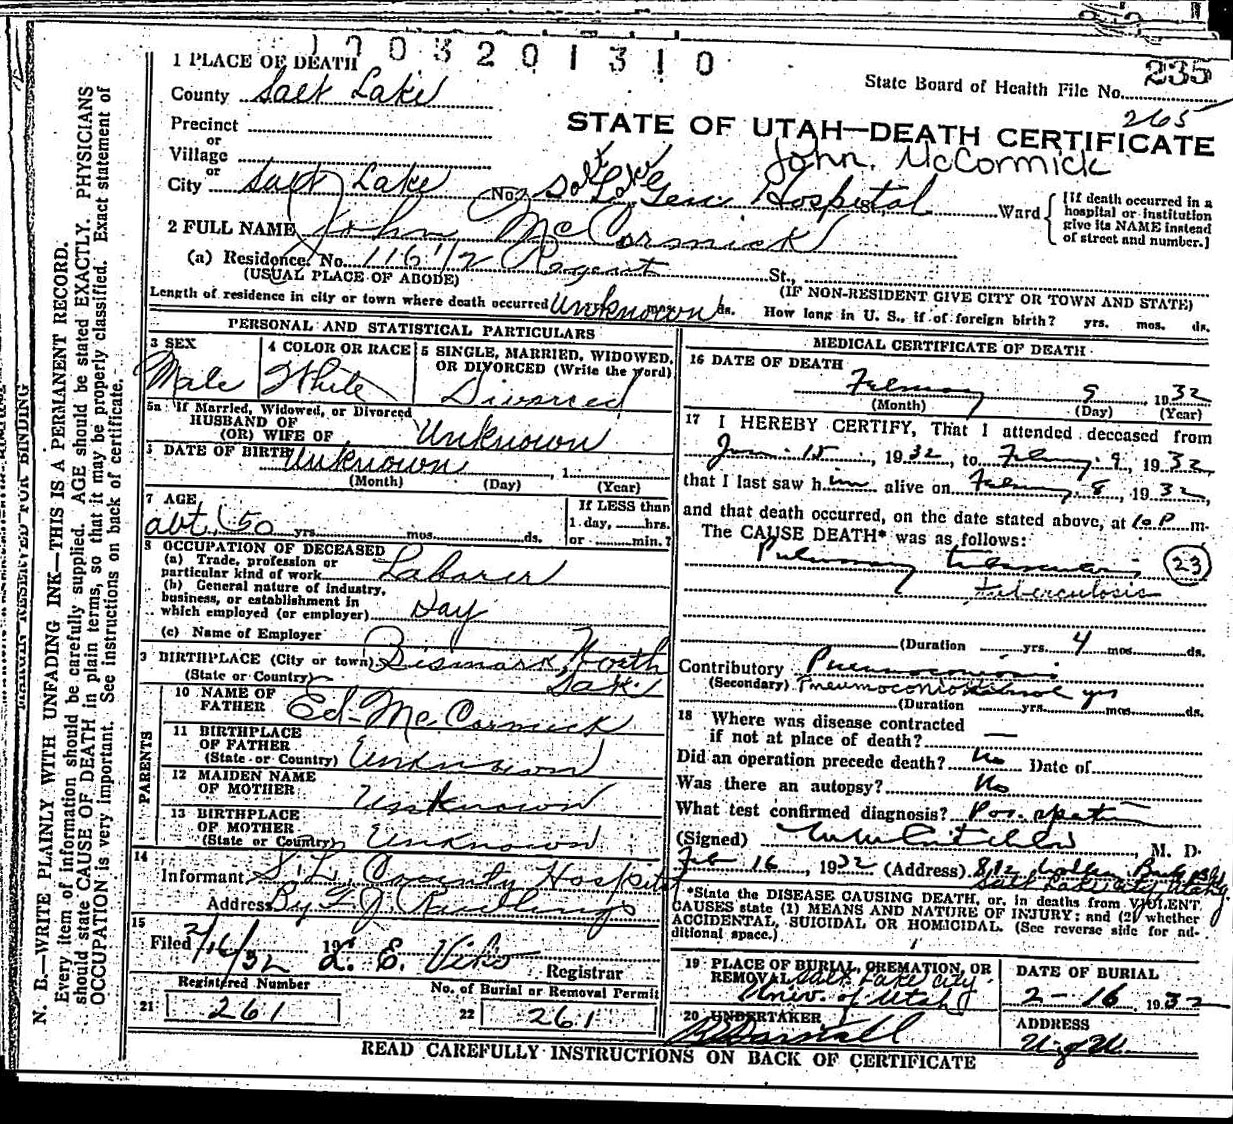 1003201310
1 PLACE OF DEATH
State Board of Health File No. 235
County Salt Lake
265
Precinct
STATE OF UTAH—DEATH CERTIFICATE
or
Village
John. McCormick
or
City Salt Lake No. Salt Lake Gen Hospital St., Ward
[If death occurred in a hospital or institution give its NAME instead of street and number.]
2 FULL NAME John McCormick
(a) Residence. No. 116 1/2 Regent St.,
(USUAL PLACE OF ABODE) (IF NON-RESIDENT GIVE CITY OR TOWN AND STATE)
Length of residence in city or town where death occurred Unknown yrs. mos. ds. How long in U. S., if of foreign birth? yrs. mos. ds.
PERSONAL AND STATISTICAL PARTICULARS
3 SEX Male
4 COLOR OR RACE White
5 SINGLE, MARRIED, WIDOWED, OR DIVORCED (Write the word) Divorced
5a If Married, Widowed, or Divorced
HUSBAND OF
(OR) WIFE OF Unknown
6 DATE OF BIRTH Unknown, 1
(Month) (Day) (Year)
7 AGE
abt. 50 yrs. mos. ds.
If LESS than
1 day, hrs.
or min.?
8 OCCUPATION OF DECEASED
(a) Trade, profession or
particular kind of work Laborer
(b) General nature of industry,
business, or establishment in
which employed (or employer) Day
(c) Name of Employer
9 BIRTHPLACE (City or town) Bismark, North
(State or Country) Dak.
PARENTS
10 NAME OF
FATHER Ed. McCormick
11 BIRTHPLACE
OF FATHER
(State or Country) Unknown
12 MAIDEN NAME
OF MOTHER Unknown
13 BIRTHPLACE
OF MOTHER
(State or Country) Unknown
14
Informant S. L. County Hospital
Address By F. J.
15
Filed 2/16/32 19 L. E. Viko Registrar
Registered Number
21 261
No. of Burial or Removal Permit
22 261
MEDICAL CERTIFICATE OF DEATH
16 DATE OF DEATH
February 9, 1932
(Month) (Day) (Year)
17 I HEREBY CERTIFY, That I attended deceased from
Jan. 15, 1932, to February 9, 1932,
that I last saw him alive on February 8, 1932,
and that death occurred, on the date stated above, at 10 P. m.
The CAUSE DEATH* was as follows:
Pulmonary tuberculosis (23)
tuberculosis
(Duration yrs. 4 mos. ds.
Contributory Pneumoconiosis
(Secondary) Pneumoconiosis
(Duration yrs. mos. ds.
18 Where was disease contracted
if not at place of death? —
Did an operation precede death? No Date of
Was there an autopsy? No
What test confirmed diagnosis? Pos.
(Signed) , M. D.
Feb 16, 1932 (Address) 812
Salt Lake City Utah
*State the DISEASE CAUSING DEATH, or, in deaths from VIOLENT
CAUSES state (1) MEANS AND NATURE OF INJURY; and (2) whether
ACCIDENTAL, SUICIDAL OR HOMICIDAL. (See reverse side for ad-
ditional space.)
19 PLACE OF BURIAL, CREMATION, OR
REMOVAL Salt Lake City
Univ. of Utah
DATE OF BURIAL
2-16 1932
20 UNDERTAKER
ADDRESS
U. of U.
READ CAREFULLY INSTRUCTIONS ON BACK OF CERTIFICATE
MARGIN RESERVED FOR BINDING
N. B.—WRITE PLAINLY WITH UNFADING INK—THIS IS A PERMANENT RECORD.
Every item of information should be carefully supplied. AGE should be stated EXACTLY. PHYSICIANS
should state CAUSE OF DEATH in plain terms, so that it may be properly classified. Exact statement of
OCCUPATION is very important. See instructions on back of certificate.